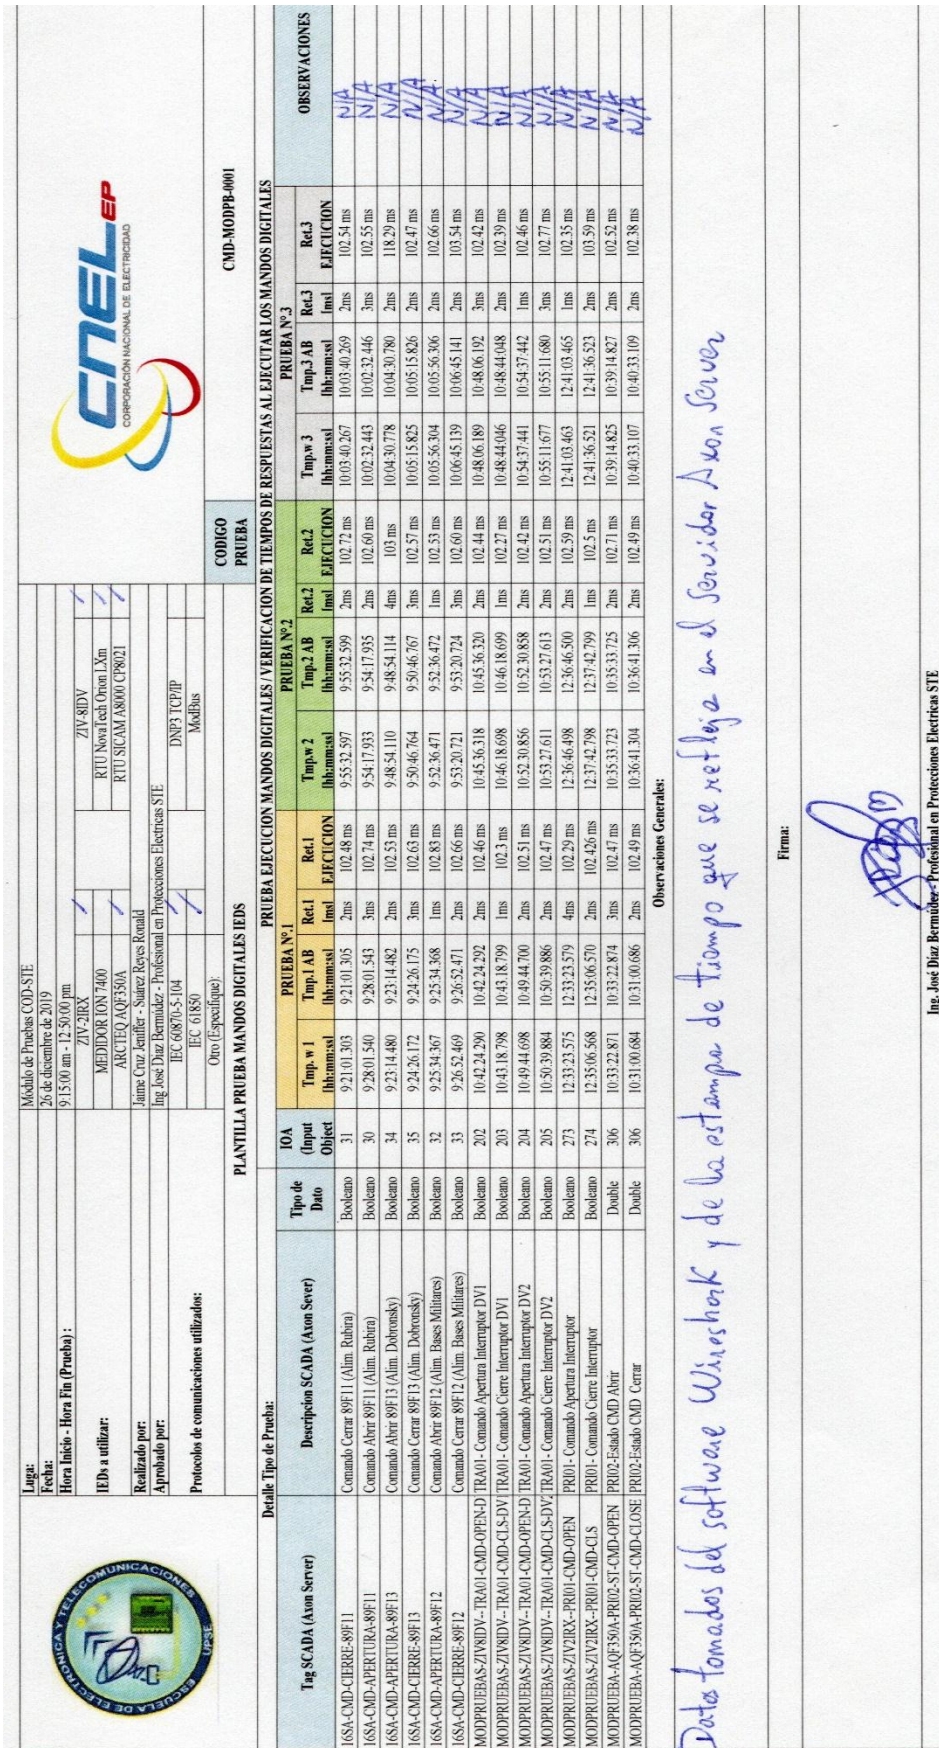 ESCUELA DE ELECTRONICA Y TELECOMUNICACIONES
UPSE
Luga: Módulo de Pruebas COD-STE
Fecha: 26 de diciembre de 2019
Hora Inicio - Hora Fin (Prueba) : 9:15:00 am - 12:50:00 pm
IEDs a utilizar:
ZIV-2IRX / ZIV-8IDV /
MEDIDOR ION 7400 RTU NovaTech Orion LXm /
ARCTEQ AQF350A / RTU SICAM A8000 CP8021 /
Realizado por: Jaime Cruz Jeniffer - Suárez Reyes Ronald
Aprobado por: Ing José Diaz Bermúdez - Profesional en Protecciones Electricas STE
Protocolos de comunicaciones utilizados:
IEC 60870-5-104 / DNP3 TCP/IP
IEC 61850 / ModBus
Otro (Especifique):
cnel EP
CORPORACIÓN NACIONAL DE ELECTRICIDAD
PLANTILLA PRUEBA MANDOS DIGITALES IEDS
CODIGO PRUEBA
CMD-MODPB-0001
Detalle Tipo de Prueba: PRUEBA EJECUCION MANDOS DIGITALES / VERIFICACION DE TIEMPOS DE RESPUESTAS AL EJECUTAR LOS MANDOS DIGITALES
PRUEBA Nº.1 PRUEBA Nº.2 PRUEBA Nº.3
Tag SCADA (Axon Server) Descripcion SCADA (Axon Sever) Tipo de Dato IOA (Input Object Tmp. w 1 [hh:mm:ss] Tmp.1 AB [hh:mm:ss] Ret.1 [ms] Ret.1 EJECUCION Tmp.w 2 [hh:mm:ss] Tmp.2 AB [hh:mm:ss] Ret.2 [ms] Ret.2 EJECUCION Tmp.w 3 [hh:mm:ss] Tmp.3 AB [hh:mm:ss] Ret.3 [ms] Ret.3 EJECUCION OBSERVACIONES
16SA-CMD-CIERRE-89F11 Comando Cerrar 89F11 (Alim. Rubira) Booleano 31 9:21:01.303 9:21:01.305 2ms 102.48 ms 9:55:32.597 9:55:32.599 2ms 102.72 ms 10:03:40.267 10:03:40.269 2ms 102.54 ms N/A
16SA-CMD-APERTURA-89F11 Comando Abrir 89F11 (Alim. Rubira) Booleano 30 9:28:01.540 9:28:01.543 3ms 102.74 ms 9:54:17.933 9:54:17.935 2ms 102.60 ms 10:02:32.443 10:02:32.446 3ms 102.55 ms N/A
16SA-CMD-APERTURA-89F13 Comando Abrir 89F13 (Alim. Dobronsky) Booleano 34 9:23:14.480 9:23:14.482 2ms 102.53 ms 9:48:54.110 9:48:54.114 4ms 103 ms 10:04:30.778 10:04:30.780 2ms 118.29 ms N/A
16SA-CMD-CIERRE-89F13 Comando Cerrar 89F13 (Alim. Dobronsky) Booleano 35 9:24:26.172 9:24:26.175 3ms 102.63 ms 9:50:46.764 9:50:46.767 3ms 102.57 ms 10:05:15.825 10:05:15.826 2ms 102.47 ms N/A
16SA-CMD-APERTURA-89F12 Comando Abrir 89F12 (Alim. Bases Militares) Booleano 32 9:25:34.367 9:25:34.368 1ms 102.83 ms 9:52:36.471 9:52:36.472 1ms 102.53 ms 10:05:56.304 10:05:56.306 2ms 102.66 ms N/A
16SA-CMD-CIERRE-89F12 Comando Cerrar 89F12 (Alim. Bases Militares) Booleano 33 9:26:52.469 9:26:52.471 2ms 102.66 ms 9:53:20.721 9:53:20.724 3ms 102.60 ms 10:06:45.139 10:06:45.141 2ms 103.54 ms N/A
MODPRUEBAS-ZIV8IDV--TRA01-CMD-OPEN-D TRA01- Comando Apertura Interruptor DV1 Booleano 202 10:42:24.290 10:42:24.292 2ms 102.46 ms 10:45:36.318 10:45:36.320 2ms 102.44 ms 10:48:06.189 10:48:06.192 3ms 102.42 ms N/A
MODPRUEBAS-ZIV8IDV--TRA01-CMD-CLS-DV TRA01- Comando Cierre Interruptor DV1 Booleano 203 10:43:18.798 10:43:18.799 1ms 102.3 ms 10:46:18.698 10:46:18.699 1ms 102.27 ms 10:48:44:046 10:48:44:048 2ms 102.39 ms N/A
MODPRUEBAS-ZIV8IDV--TRA01-CMD-OPEN-D TRA01- Comando Apertura Interruptor DV2 Booleano 204 10:49:44.698 10:49:44.700 2ms 102.51 ms 10:52:30.856 10:52:30.858 2ms 102.42 ms 10:54:37:441 10:54:37:442 1ms 102.46 ms N/A
MODPRUEBAS-ZIV8IDV--TRA01-CMD-CLS-DV2 TRA01- Comando Cierre Interruptor DV2 Booleano 205 10:50:39.884 10:50:39.886 2ms 102.47 ms 10:53:27.611 10:53:27.613 2ms 102.51 ms 10:55:11:677 10:55:11:680 3ms 102.77 ms N/A
MODPRUEBAS-ZIV2IRX--PRI01-CMD-OPEN PRI01- Comando Apertura Interruptor Booleano 273 12:33:23.575 12:33:23.579 4ms 102.29 ms 12:36:46.498 12:36:46.500 2ms 102.59 ms 12:41:03.463 12:41:03.465 1ms 102.35 ms N/A
MODPRUEBAS-ZIV2IRX--PRI01-CMD-CLS PRI01- Comando Cierre Interruptor Booleano 274 12:35:06.568 12:35:06.570 2ms 102.426 ms 12:37:42.798 12:37:42.799 1ms 102.5 ms 12:41:36.521 12:41:36.523 2ms 103.59 ms N/A
MODPRUEBA-AQF350A-PRI02-ST-CMD-OPEN PRI02-Estado CMD Abrir Double 306 10:33:22.871 10:33:22.874 3ms 102.47 ms 10:35:33.723 10:35:33.725 2ms 102.71 ms 10:39:14.825 10:39:14.827 2ms 102.52 ms N/A
MODPRUEBA-AQF350A-PRI02-ST-CMD-CLOSE PRI02-Estado CMD Cerrar Double 306 10:31:00.684 10:31:00.686 2ms 102.49 ms 10:36:41.304 10:36:41.306 2ms 102.49 ms 10:40:33.107 10:40:33.109 2ms 102.38 ms N/A
Observaciones Generales:
Datos tomados del software Wireshark y de la estampa de tiempo que se refleja en el Servidor Axon Server
Firma:
Ing. José Diaz Bermúdez - Profesional en Protecciones Electricas STE